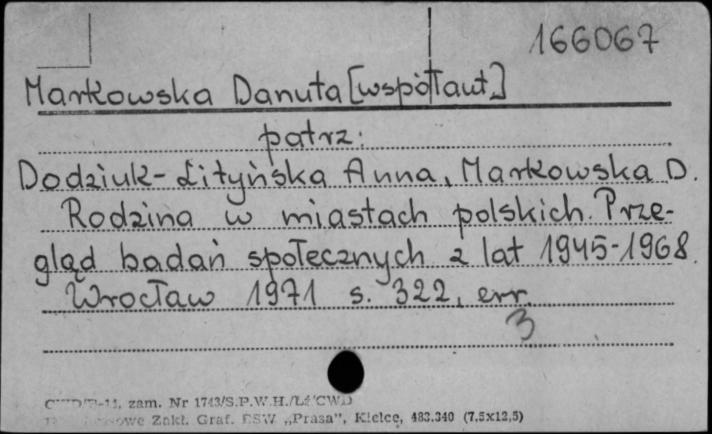 166067
Markowska Danuta [współaut.]
patrz:
Dodziuk-Lityńska Anna, Markowska D.
Rodzina w miastach polskich. Prze-
gląd badań społecznych z lat 1945-1968.
Wrocław 1971 s. 322, err.
3
zam. Nr 1743/S.P.W.H./Łź CWD
Zakł. Graf. RSW „Prasa”, Kielce, 483.340 (7,5x12,5)